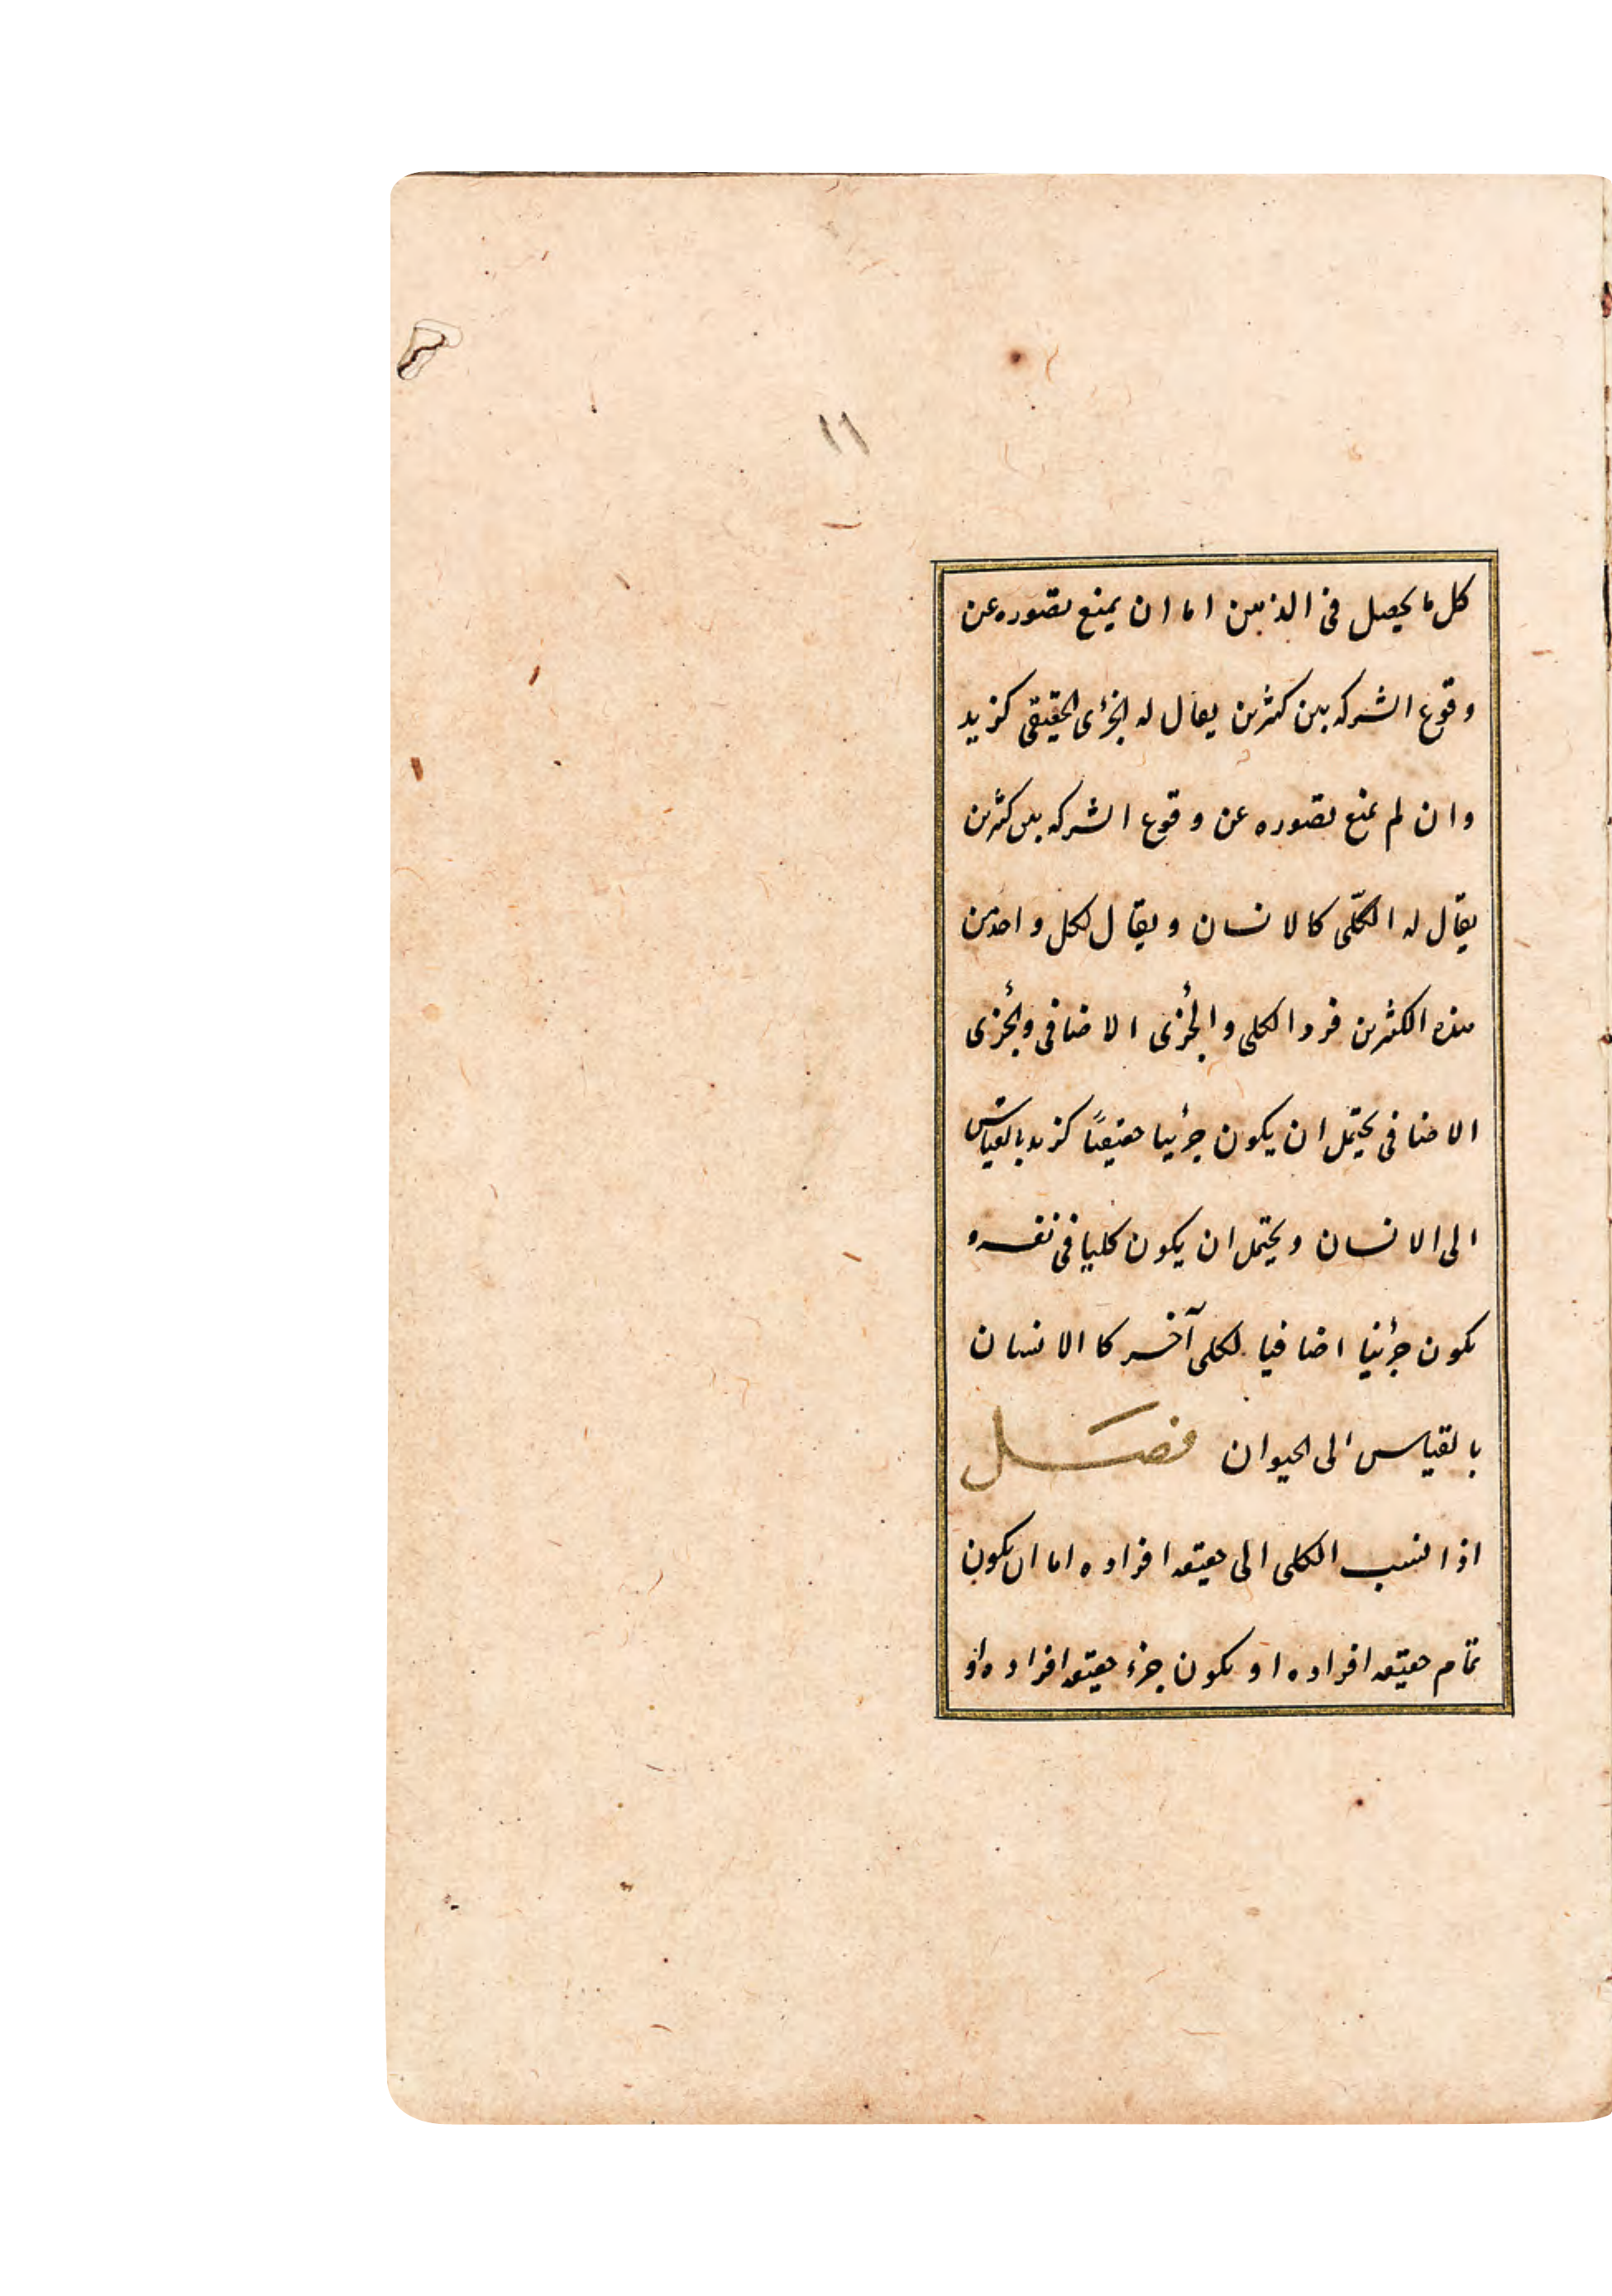 ١١
كل ما يحصل فى الذهن اما ان يمنع تصوره عن
وقوع الشركه بين كثرين يقال له الجزءى الحقيقى كزيد
وان لم يمنع تصوره عن وقوع الشركه بين كثرين
يقال له الكلّى كالانسان ويقال لكل واحد من
هذه الكثرين فرد الكلى والجزئى الاضافى والجزئى
الاضافى يحتمل ان يكون جزئيا حقيقيًا كزيد بالقياس
الى الانسان ويحتمل ان يكون كليا فى نفسه و
يكون جزئيا اضافيا لكلى آخر كا الانسان
بالقياس الى الحيوان فصَل
اذا نسب الكلى الى حقيقه افراده اما ان يكون
تمام حقيقه افراده او يكون جزء حقيقه افراده او